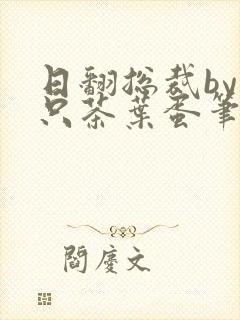 日翻总裁by一
只茶葉蛋筆
閻慶文